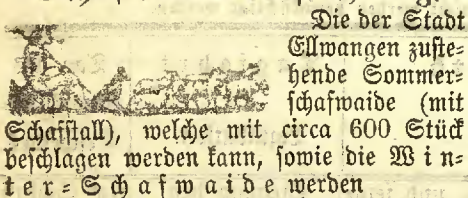 Die der Stadt
Ellwangen zuste-
hende Sommer-
schafwaide (mit
Schafstall), welche mit circa 600 Stück
beschlagen werden kann, sowie die Win-
ter-Schafwaide werden